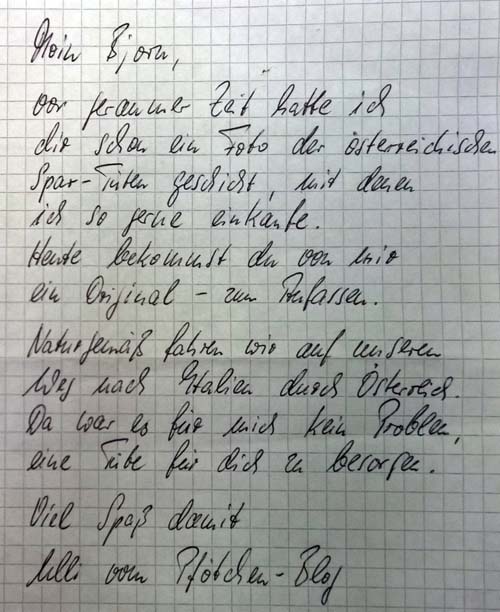 Moin Björn,
vor geraumer Zeit hatte ich
dir schon ein Foto der österreichischen
Spar-Tüten geschickt, mit denen
ich so gerne einkaufe.
Heute bekommst du von mir
ein Original - zum Anfassen.
Naturgemäß fahren wir auf unseren
Weg nach Italien durch Österreich.
Da war es für mich kein Problem,
eine Tüte für dich zu besorgen.
Viel Spaß damit
Ulli vom Pfötchen-Blog